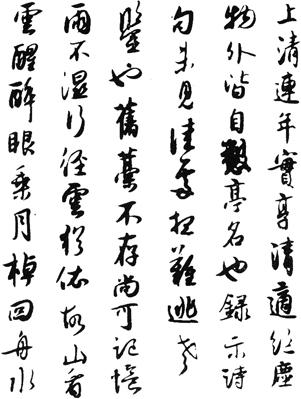 上清連年實享清適絕塵
物外皆自亭名也録示詩
句未見佳處難逃老
鑒也舊藁不存尚可記憶
雨不濕行徑雲猶依故山看
雲醒醉眼乘月棹回舟水